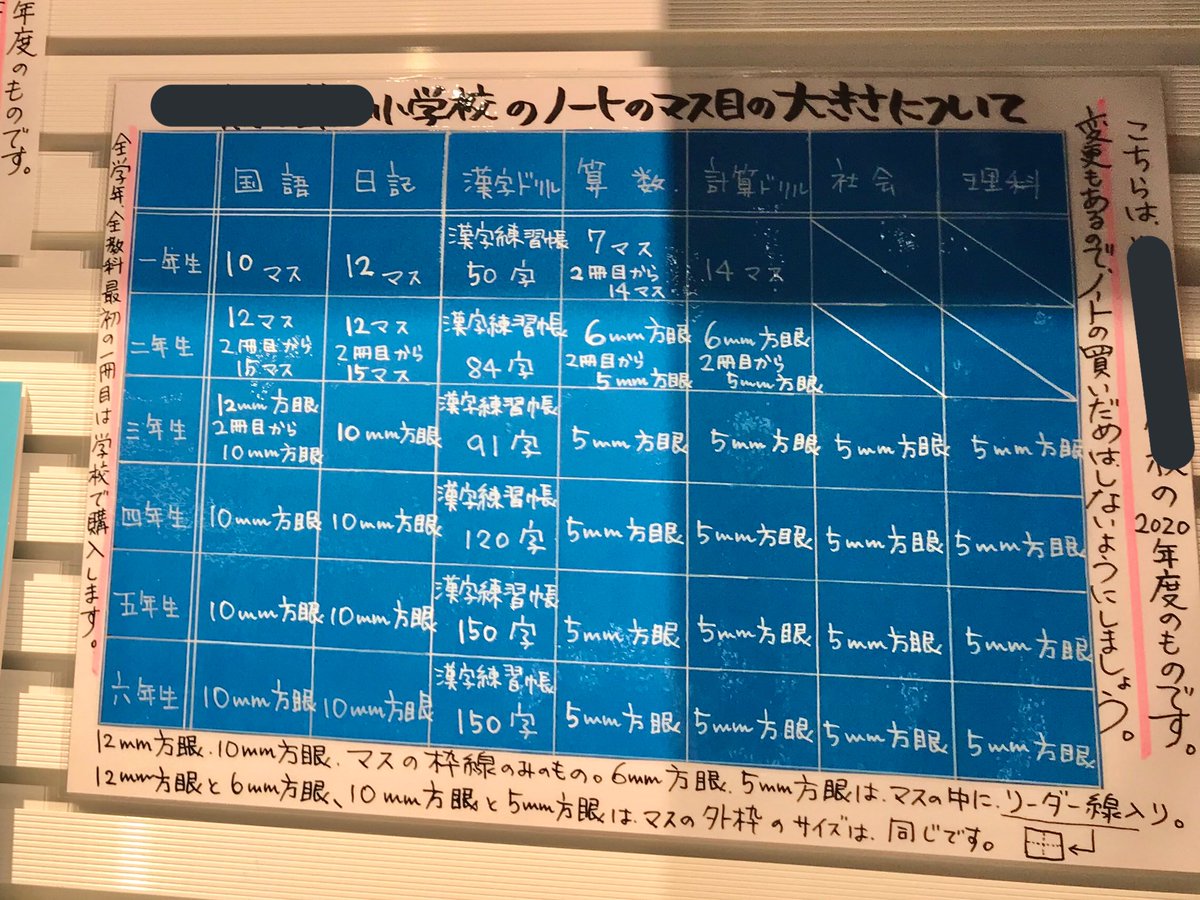 年度のものです。
小学校のノートのマス目の大きさについて
こちらは、
校の2020年度のものです。
変更もあるので、ノートの買いだめはしないようにしましょう。
全学年、全教科最初の一冊目は学校で購入します。
国語 日記 漢字ドリル 算数 計算ドリル 社会 理科
一年生 10マス 12マス 漢字練習帳 50字 7マス 2冊目から 14マス 14マス
二年生 12マス 2冊目から 15マス 12マス 2冊目から 15マス 漢字練習帳 84字 6mm方眼 2冊目から 5mm方眼 6mm方眼 2冊目から 5mm方眼
三年生 12mm方眼 2冊目から 10mm方眼 10mm方眼 漢字練習帳 91字 5mm方眼 5mm方眼 5mm方眼 5mm方眼
四年生 10mm方眼 10mm方眼 漢字練習帳 120字 5mm方眼 5mm方眼 5mm方眼 5mm方眼
五年生 10mm方眼 10mm方眼 漢字練習帳 150字 5mm方眼 5mm方眼 5mm方眼 5mm方眼
六年生 10mm方眼 10mm方眼 漢字練習帳 150字 5mm方眼 5mm方眼 5mm方眼 5mm方眼
12mm方眼、10mm方眼、マスの枠線のみのもの。6mm方眼、5mm方眼は、マスの中に、リーダー線入り。
12mm方眼と6mm方眼、10mm方眼と5mm方眼は、マスの外枠のサイズは、同じです。